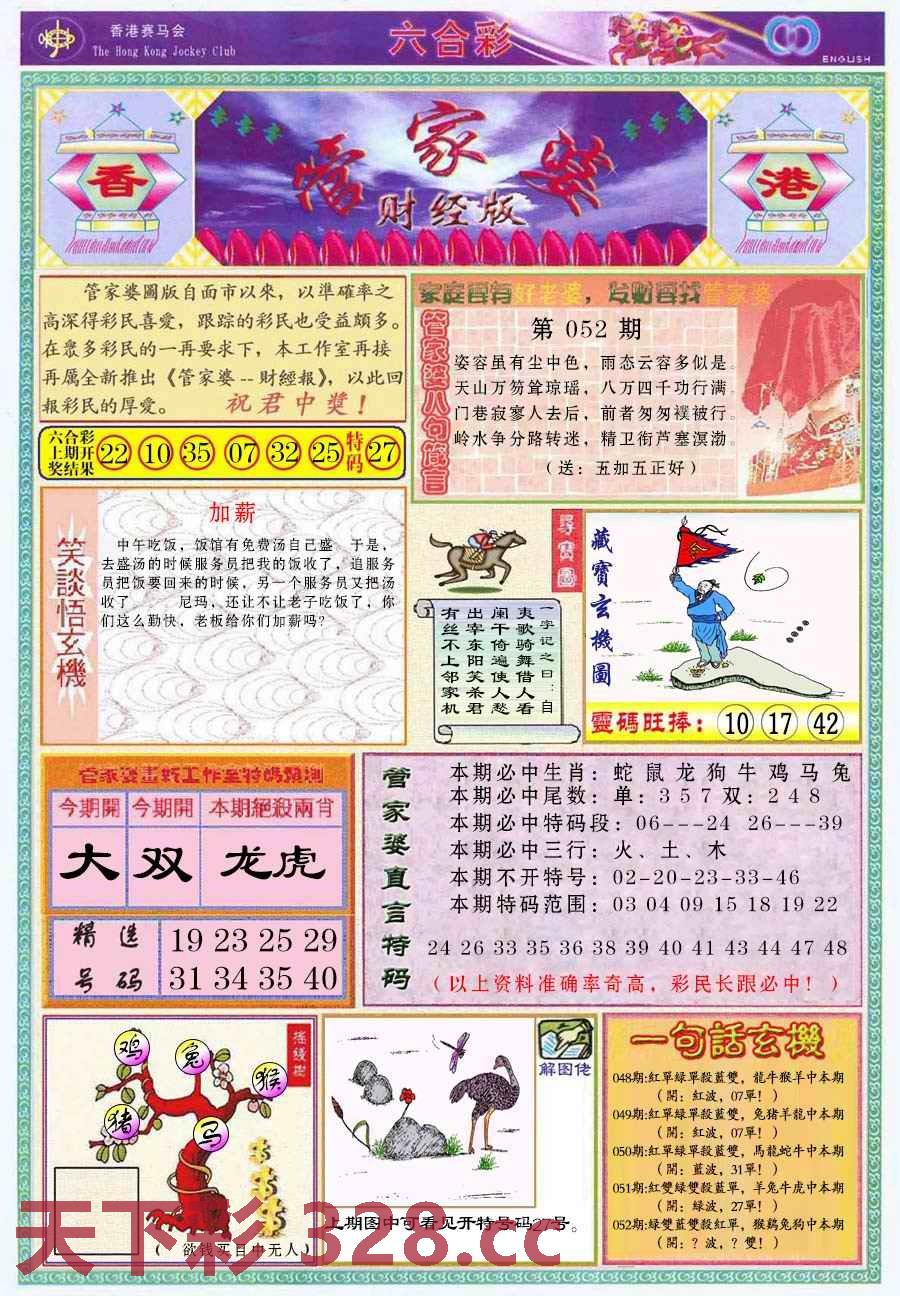 香港赛马会
The Hong Kong Jockey Club
六合彩
ENGLISH
香
管家婆
财经版
港
管家婆圖版自面市以來，以準確率之
高深得彩民喜愛，跟踪的彩民也受益頗多。
在眾多彩民的一再要求下，本工作室再接
再厲全新推出《管家婆--財經報》，以此回
報彩民的厚愛。 祝君中獎！
六合彩
上期开
奖结果
22 10 35 07 32 25 特码 27
家庭要有好老婆，发财要找管家婆
管家婆八句箴言
第 052 期
姿容虽有尘中色，雨态云容多似是。
天山万笏耸琼瑶，八万四千功行满。
门巷寂寥人去后，前者匆匆襆被行。
岭水争分路转迷，精卫衔芦塞溟渤。
（送：五加五正好）
笑談悟玄機
加薪
中午吃饭，饭馆有免费汤自己盛 于是，
去盛汤的时候服务员把我的饭收了，追服务
员把饭要回来的时候，另一个服务员又把汤
收了 尼玛、还让不让老子吃饭了，你
们这么勤快，老板给你们加薪吗?
尋寶圖
一字记之曰：自
夷歌骑舞借人看
阑干倚遍使人愁
出宰东阳笑杀君
有丝不上邻家机
藏寶玄機圖
靈碼旺捧： 10 17 42
管家婆畫報工作室特碼預測
今期開 今期開 本期絕殺兩肖
大 双 龙虎
精选
号码
19 23 25 29
31 34 35 40
管家婆直言特码
本期必中生肖：蛇 鼠 龙 狗 牛 鸡 马 兔
本期必中尾数：单：3 5 7 双：2 4 8
本期必中特码段：06---24 26---39
本期必中三行：火、土、木
本期不开特号：02-20-23-33-46
本期特码范围：03 04 09 15 18 19 22
24 26 33 35 36 38 39 40 41 43 44 47 48
（以上资料准确率奇高，彩民长跟必中！）
摇钱樹
鸡
兔
猴
猪
马
（ 欲钱买目中无人）
解图佬
上期图中可看见开特号码27号。
一句話玄機
048期:紅單綠單殺藍雙，龍牛猴羊中本期
（開：紅波，07單！）
049期:紅單綠單殺藍雙，兔猪羊龍中本期
（開：紅波，07單！）
050期:紅單綠單殺藍雙，馬龍蛇牛中本期
（開：藍波，31單！）
051期:紅雙綠雙殺藍單，羊兔牛虎中本期
（開：綠波，27單！）
052期:綠雙藍雙殺紅單，猴鷄兔狗中本期
（開：？波，？雙！）
天下彩 328.cc